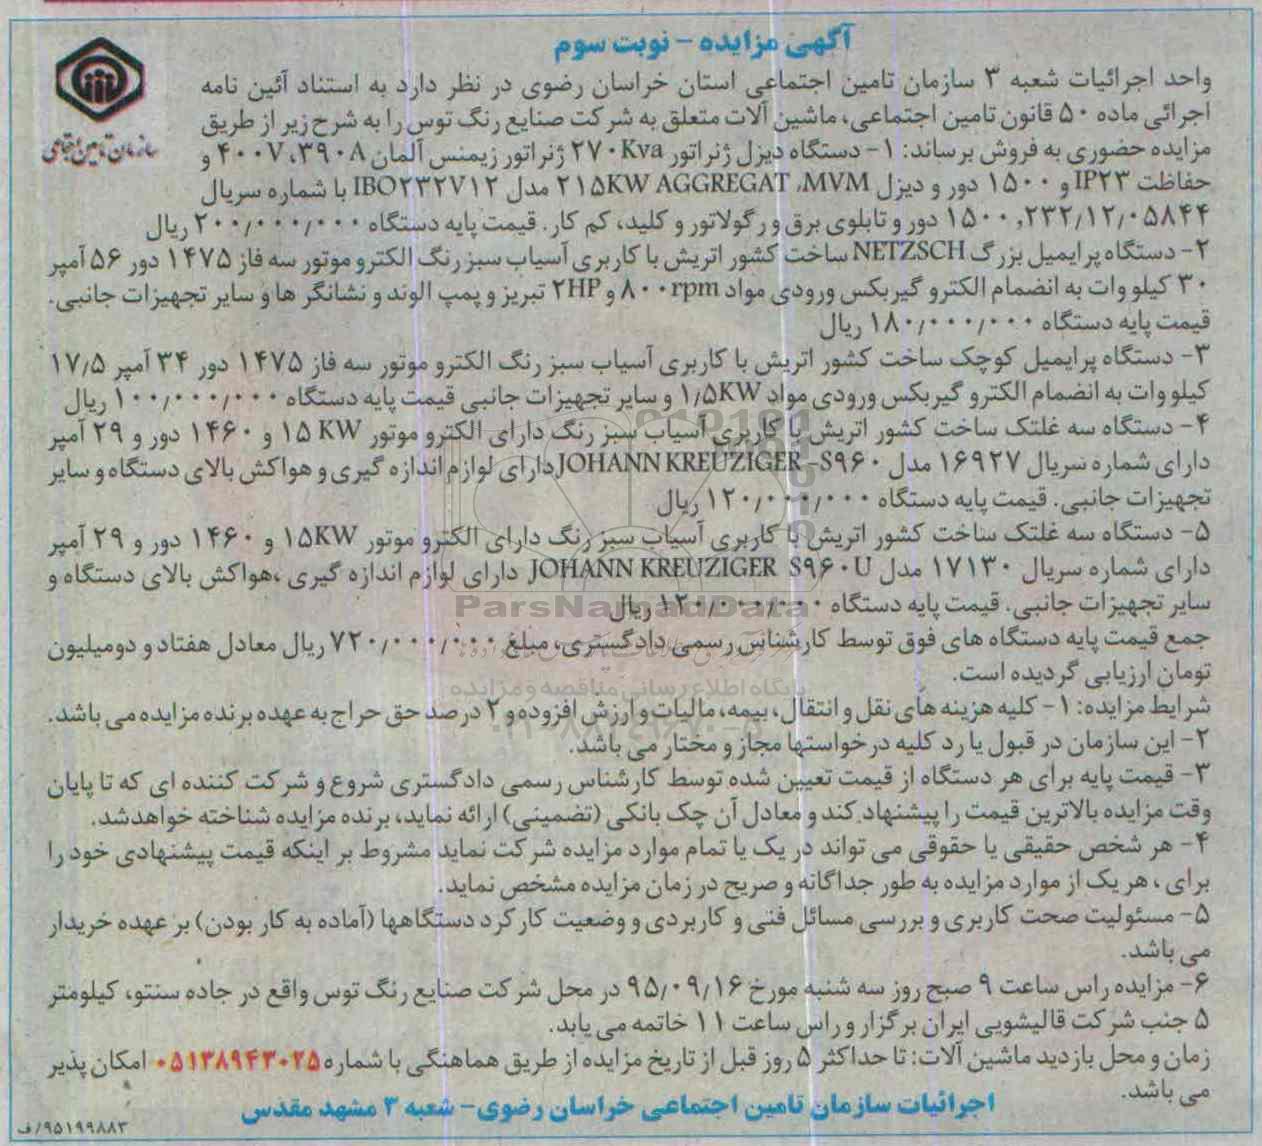 آگهی مزایده - نوبت سوم
سازمان تامین اجتماعی
واحد اجرائیات شعبه ۳ سازمان تامین اجتماعی استان خراسان رضوی در نظر دارد به استناد آئین نامه
اجرائی ماده ۵۰ قانون تامین اجتماعی، ماشین آلات متعلق به شرکت صنایع رنگ توس را به شرح زیر از طریق
مزایده حضوری به فروش برساند: ۱- دستگاه دیزل ژنراتور ۲۷۰Kva ژنراتور زیمنس آلمان ۴۰۰V،۳۹۰A و
حفاظت IP۲۳ و ۱۵۰۰ دور و دیزل ۲۱۵KW AGGREGAT ،MVM مدل IBO۲۳۲V۱۲ با شماره سریال
۱۵۰۰,۲۳۲/۱۲/۰۵۸۴۴ دور و تابلوی برق و رگولاتور و کلید، کم کار. قیمت پایه دستگاه ۲۰۰/۰۰۰/۰۰۰ ریال
۲- دستگاه پرایمیل بزرگ NETZSCH ساخت کشور اتریش با کاربری آسیاب سبز رنگ الکترو موتور سه فاز ۱۴۷۵ دور ۵۶ آمپر
۳۰ کیلو وات به انضمام الکترو گیربکس ورودی مواد ۸۰۰rpm و ۲HP تبریز و پمپ الوند و نشانگر ها و سایر تجهیزات جانبی.
قیمت پایه دستگاه ۱۸۰/۰۰۰/۰۰۰ ریال
۳- دستگاه پرایمیل کوچک ساخت کشور اتریش با کاربری آسیاب سبز رنگ الکترو موتور سه فاز ۱۴۷۵ دور ۳۴ آمپر ۱۷/۵
کیلو وات به انضمام الکترو گیربکس ورودی مواد ۱/۵KW و سایر تجهیزات جانبی قیمت پایه دستگاه ۱۰۰/۰۰۰/۰۰۰ ریال
۴- دستگاه سه غلتک ساخت کشور اتریش با کاربری آسیاب سبز رنگ دارای الکترو موتور ۱۵ KW و ۱۴۶۰ دور و ۲۹ آمپر
دارای شماره سریال ۱۶۹۲۷ مدل JOHANN KREUZIGER -S۹۶۰دارای لوازم اندازه گیری و هواکش بالای دستگاه و سایر
تجهیزات جانبی. قیمت پایه دستگاه ۱۲۰/۰۰۰/۰۰۰ ریال
۵- دستگاه سه غلتک ساخت کشور اتریش با کاربری آسیاب سبز رنگ دارای الکترو موتور ۱۵KW و ۱۴۶۰ دور و ۲۹ آمپر
دارای شماره سریال ۱۷۱۳۰ مدل JOHANN KREUZIGER S۹۶۰U دارای لوازم اندازه گیری ،هواکش بالای دستگاه و
سایر تجهیزات جانبی. قیمت پایه دستگاه ۱۲۰/۰۰۰/۰۰۰ ریال
ParsNamadData
جمع قیمت پایه دستگاه های فوق توسط کارشناس رسمی دادگستری، مبلغ ۷۲۰/۰۰۰/۰۰۰ ریال معادل هفتاد و دومیلیون
تومان ارزیابی گردیده است.
پایگاه اطلاع رسانی مناقصه و مزایده
شرایط مزایده: ۱- کلیه هزینه های نقل و انتقال، بیمه، مالیات و ارزش افزوده و ۲ درصد حق حراج به عهده برنده مزایده می باشد.
۲- این سازمان در قبول یا رد کلیه درخواستها مجاز و مختار می باشد.
۳- قیمت پایه برای هر دستگاه از قیمت تعیین شده توسط کارشناس رسمی دادگستری شروع و شرکت کننده ای که تا پایان
وقت مزایده بالاترین قیمت را پیشنهاد کند و معادل آن چک بانکی (تضمینی) ارائه نماید، برنده مزایده شناخته خواهدشد.
۴- هر شخص حقیقی یا حقوقی می تواند در یک یا تمام موارد مزایده شرکت نماید مشروط بر اینکه قیمت پیشنهادی خود را
برای ، هر یک از موارد مزایده به طور جداگانه و صریح در زمان مزایده مشخص نماید.
۵- مسئولیت صحت کاربری و بررسی مسائل فنی و کاربردی و وضعیت کارکرد دستگاهها (آماده به کار بودن) بر عهده خریدار
می باشد.
۶- مزایده راس ساعت ۹ صبح روز سه شنبه مورخ ۹۵/۰۹/۱۶ در محل شرکت صنایع رنگ توس واقع در جاده سنتو، کیلومتر
۵ جنب شرکت قالیشویی ایران برگزار و راس ساعت ۱۱ خاتمه می یابد.
زمان و محل بازدید ماشین آلات: تا حداکثر ۵ روز قبل از تاریخ مزایده از طریق هماهنگی با شماره ۰۵۱۳۸۹۴۳۰۲۵ امکان پذیر
می باشد.
اجرائیات سازمان تامین اجتماعی خراسان رضوی- شعبه ۳ مشهد مقدس
۹۵۱۹۹۸۸۳/ف